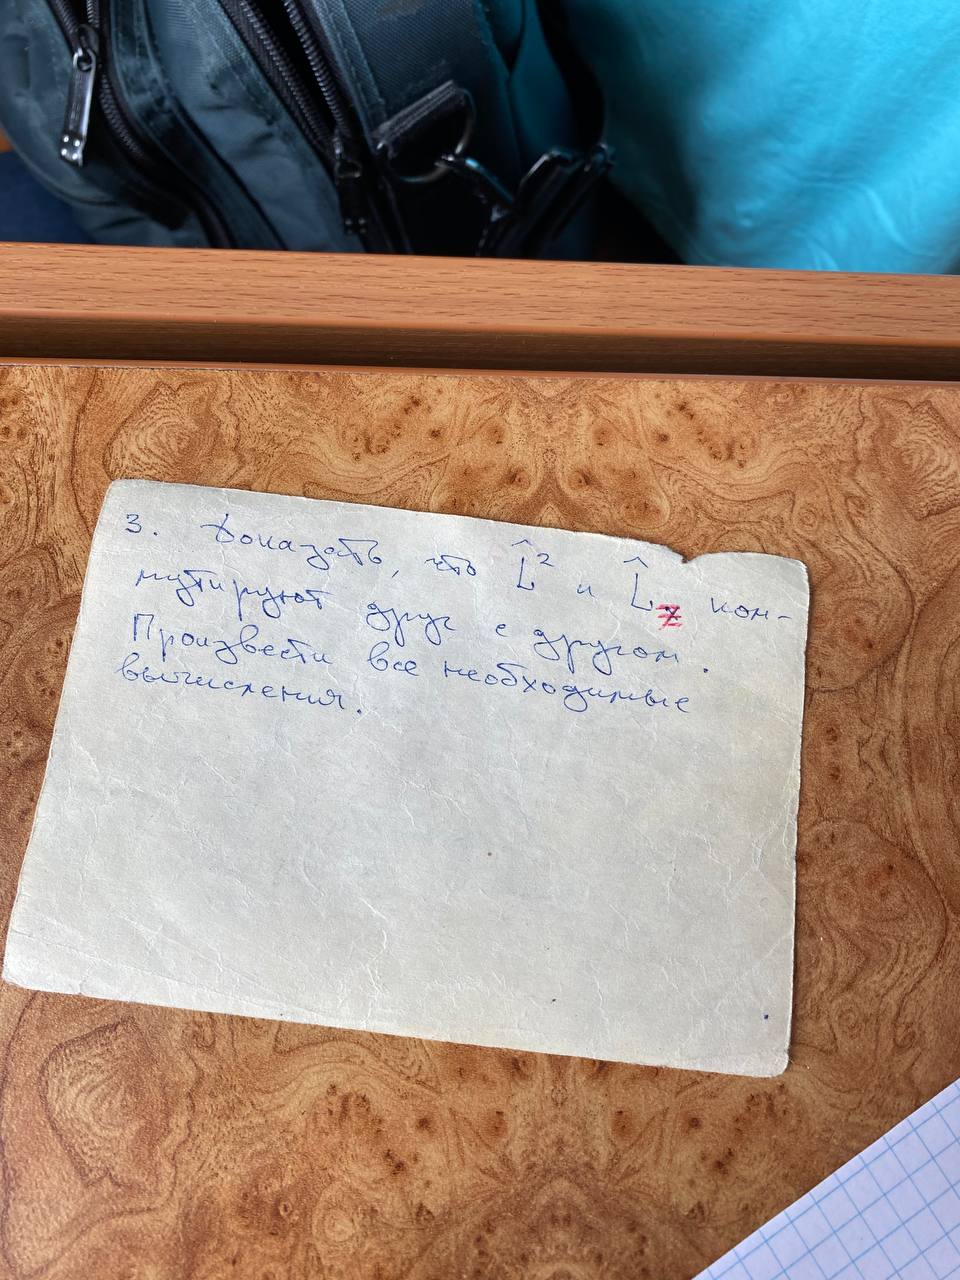 3. Доказать, что L̂² и L̂z ком-
мутируют друг с другом.
Произвести все необходимые
вычисления.